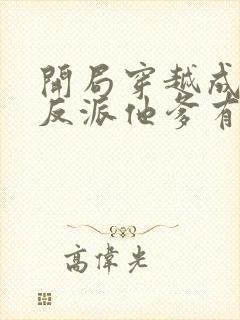 開局穿越成
反派他爹有
高偉光